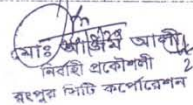 মোঃ আজম আলী
নির্বাহী প্রকৌশলী
রংপুর সিটি কর্পোরেশন